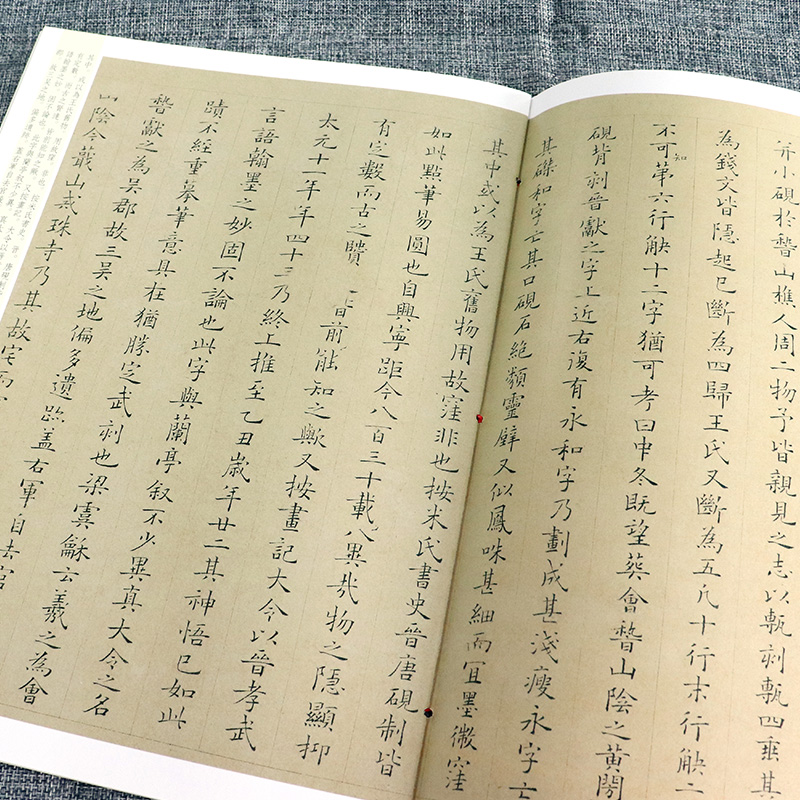 并小硯於嵇山樵人周二物予皆親見之志以甎刻甎四垂其
為錢文皆隱起已斷為四歸王氏又斷為五凡十行末行缺二
不可知第六行缺十二字猶可考曰中冬既望葬會嵇山陰之黃閍
硯背刻晉獻之字上近右復有永和字乃劃成甚淺瘦永字亡
其磔和字亡其口硯石絕類靈璧又似鳳咮甚細而宜墨微窪
其中或以為王氏舊物用故窪非也按米氏書史晉唐硯制皆
如此點筆易圓也自興寧距今八百三十載八異哉物之隱顯抑
有定數而古之皆前能知之歟又按畫記大令以晉孝武
太元十一年年四十三乃終上推至乙丑歲年廿二其神悟已如此
言語翰墨之妙固不論也此字與蘭亭敘不少異真大令之名
蹟不經重摹筆意具在猶勝定武刻也梁虞龢云羲之為會
嵇獻之為吳郡故三吳之地偏多遺跡蓋右軍自去官
山陰今蕺山戒珠寺乃其故宅而